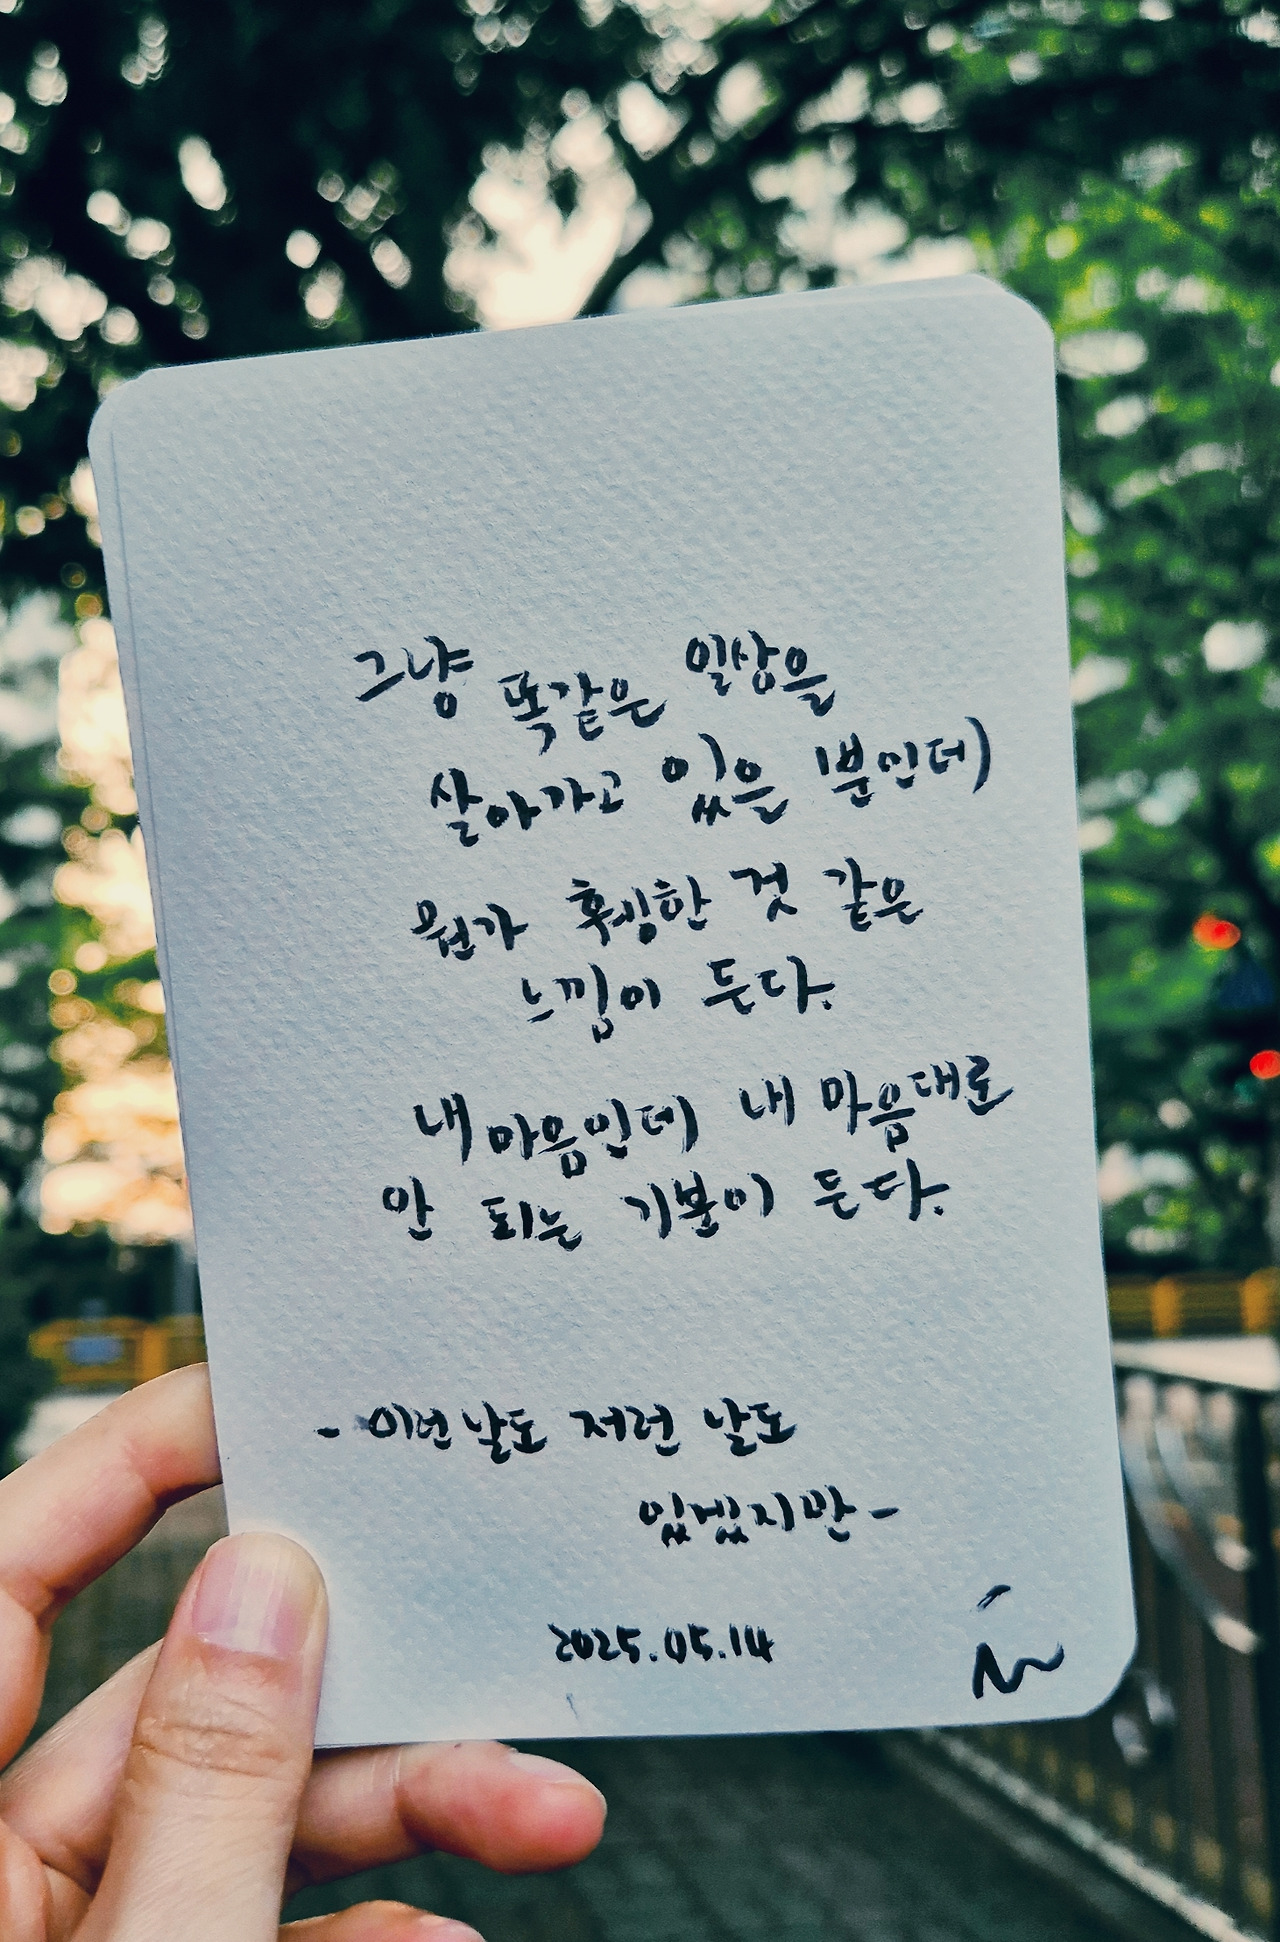 그냥 똑같은 일상을
살아가고 있을 뿐인데
뭔가 휑한 것 같은
느낌이 든다.
내 마음인데 내 마음대로
안 되는 기분이 든다.
- 이런 날도 저런 날도
있겠지만 -
2025.05.14